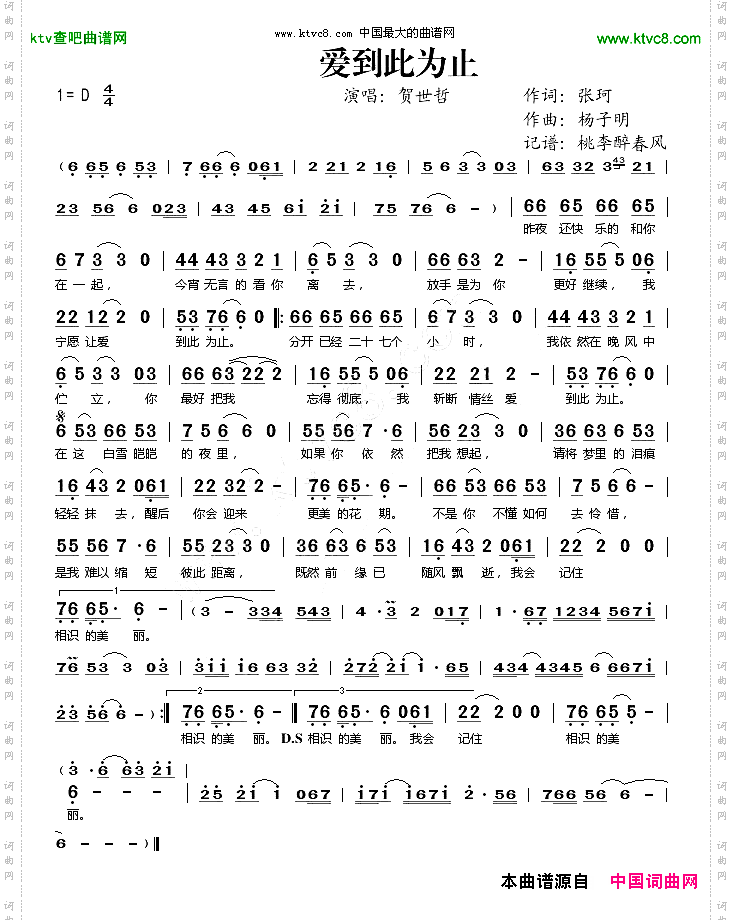 www.ktvc8.com 中国最大的曲谱网
ktv查吧曲谱网
www.ktvc8.com
爱到此为止
1=D 4/4
演唱：贺世哲
作词：张珂
作曲：杨子明
记谱：桃李醉春风
(6 665 6 53 | 7 66 6 061 | 2 21 2 16 | 5 6 3 3 03 | 63 3 32 43 21
23 56 6 023 | 43 45 61 21 | 75 76 6 - ) | 66 65 66 65
昨夜 还快 乐的 和你
6 7 3 3 0 | 44 43 3 21 | 6 5 3 3 0 | 66 63 2 - | 16 55 5 06
在 一 起， 今宵 无言 的 看你 离 去， 放手 是为 你 更好 继续， 我
22 12 2 0 | 53 76 6 0 ‖: 66 65 66 65 | 6 7 3 3 0 | 44 43 3 21
宁愿 让爱 到此 为止。 分开 已经 二十 七个 小 时， 我依 然在 晚 风中
6 5 3 3 03 | 66 63 22 2 | 16 55 5 06 | 22 21 2 - | 53 76 6 0
伫 立， 你 最好 把我 忘得 彻底， 我 斩断 情丝 爱 到此 为止。
6 53 66 53 | 7 5 6 6 0 | 55 56 7 · 6 | 56 23 3 0 | 36 63 6 53
在 这 白雪 皑皑 的 夜 里， 如果 你 依 然 把我 想起， 请将 梦里 的 泪痕
16 43 2 061 | 22 32 2 - | 76 65 · 6 - | 66 53 66 53 | 7 5 6 6 -
轻轻 抹 去，醒后 你会 迎来 更美 的花 期。 不是 你 不懂 如何 去 怜 惜，
55 56 7 · 6 | 55 23 3 0 | 36 63 6 53 | 16 43 2 061 | 22 2 0 0
是我 难以 缩 短 彼此 距离， 既然 前 缘已 随风 飘 逝，我会 记住
1
76 65 · 6 - | (3 - 334 543 | 4 · 3 2 017 | 1 · 67 1234 5671
相识 的美 丽。
76 53 3 03 | 311 16 63 32 | 272 21 1 · 65 | 434 4345 6 6671
2
3
23 56 6 - ) :‖ 76 65 · 6 - ‖ 76 65 · 6 061 | 22 2 0 0 | 76 65 5 -
相识 的美 丽。 D.S 相识 的美 丽。我会 记住 相识 的美
(3 · 6 63 21 |
6 - - - | 25 21 1 067 | 171 1671 2 · 56 | 766 56 6 -
丽。
6 - - - )‖
本曲谱源自 中国词曲网
词曲网